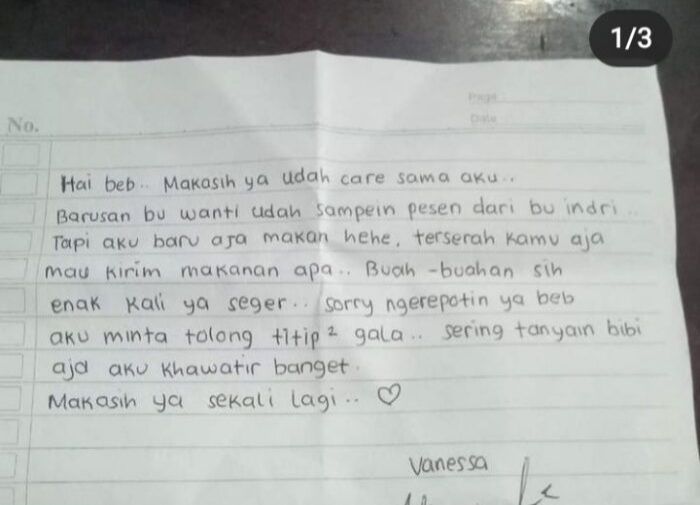 1/3
Page :
Date :
No.
Hai beb.. Makasih ya udah care sama aku..
Barusan bu wanti udah sampein pesen dari bu indri..
Tapi aku baru aja makan hehe, terserah kamu aja
mau kirim makanan apa.. Buah-buahan sih
enak kali ya seger.. sorry ngerepotin ya beb
aku minta tolong titip² gala.. sering tanyain bibi
aja aku khawatir banget.
Makasih ya sekali lagi.. ♡
Vanessa